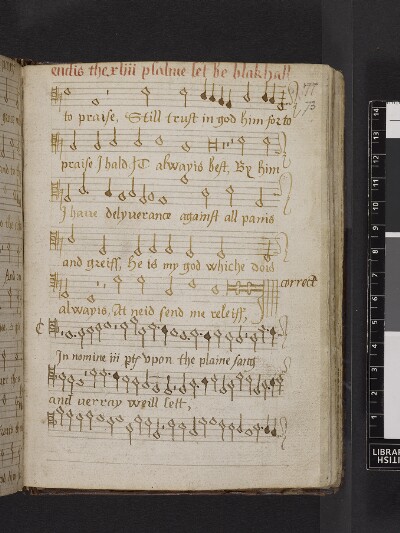 endis the xliii psalme set be blakhall
77
73
to praise, Still trust in god him for to
praise I hald it alwayis best, By him
I haue delyuerance against all panis
and greiff, He is my god whiche dois
correct
alwayis, At neid send me releiff,
In nomine iii pts vpon the plaine sang
and verray weill sett,
14
13
12
11
10
9
8
7
6
5
4
3
2
1
LIBRAR
BRITISH